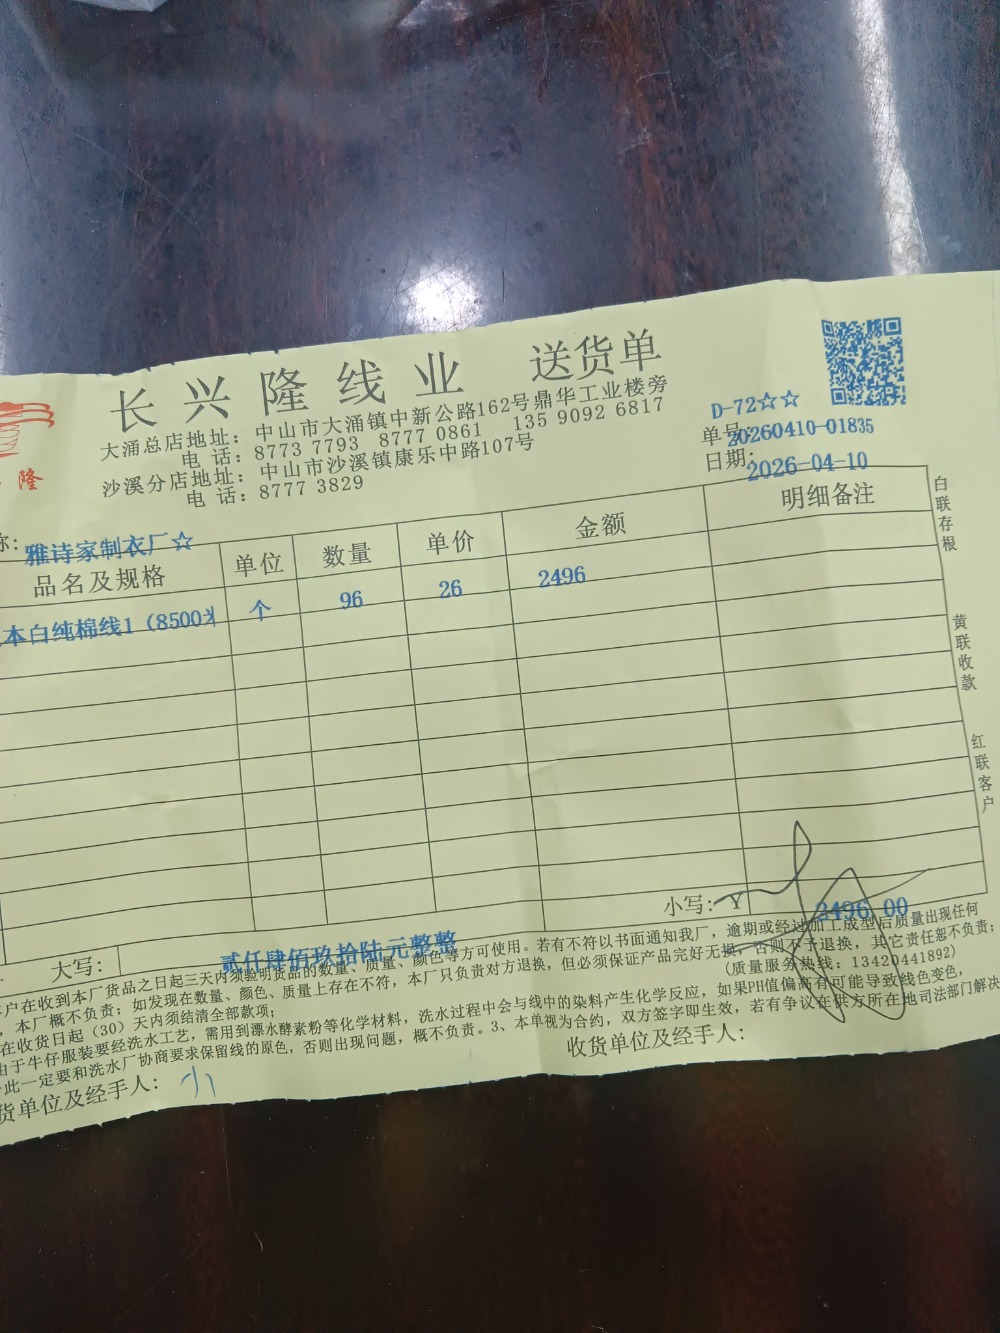 长兴隆线业 送货单
隆
大涌总店地址：中山市大涌镇中新公路162号鼎华工业楼旁
电 话：8773 7793 8777 0861 135 9092 6817
沙溪分店地址：中山市沙溪镇康乐中路107号
电 话：8777 3829
D-72☆☆
单号：20260410-01835
日期：2026-04-10
称：雅诗家制衣厂☆
品名及规格 单位 数量 单价 金额 明细备注
本白纯棉线1（8500米 个 96 26 2496
白联存根
黄联收款
红联客户
小写：￥ 2496.00
大写： 贰仟肆佰玖拾陆元整整
客户在收到本厂货品之日起三天内须验明货品的数量、质量、颜色等方可使用。若有不符以书面通知我厂，逾期或经过加工成型后质量出现任何
，本厂概不负责；如发现在数量、颜色、质量上存在不符，本厂只负责对方退换，但必须保证产品完好无损，否则不予退换，其它责任恕不负责；
在收货日起（30）天内须结清全部款项；
(质量服务热线：13420441892)
由于牛仔服装要经洗水工艺，需用到漂水酵素粉等化学材料，洗水过程中会与线中的染料产生化学反应，如果PH值偏高有可能导致线色变色，
此一定要和洗水厂协商要求保留线的原色，否则出现问题，概不负责。3、本单视为合约，双方签字即生效，若有争议在供方所在地司法部门解决
货单位及经手人：
收货单位及经手人：